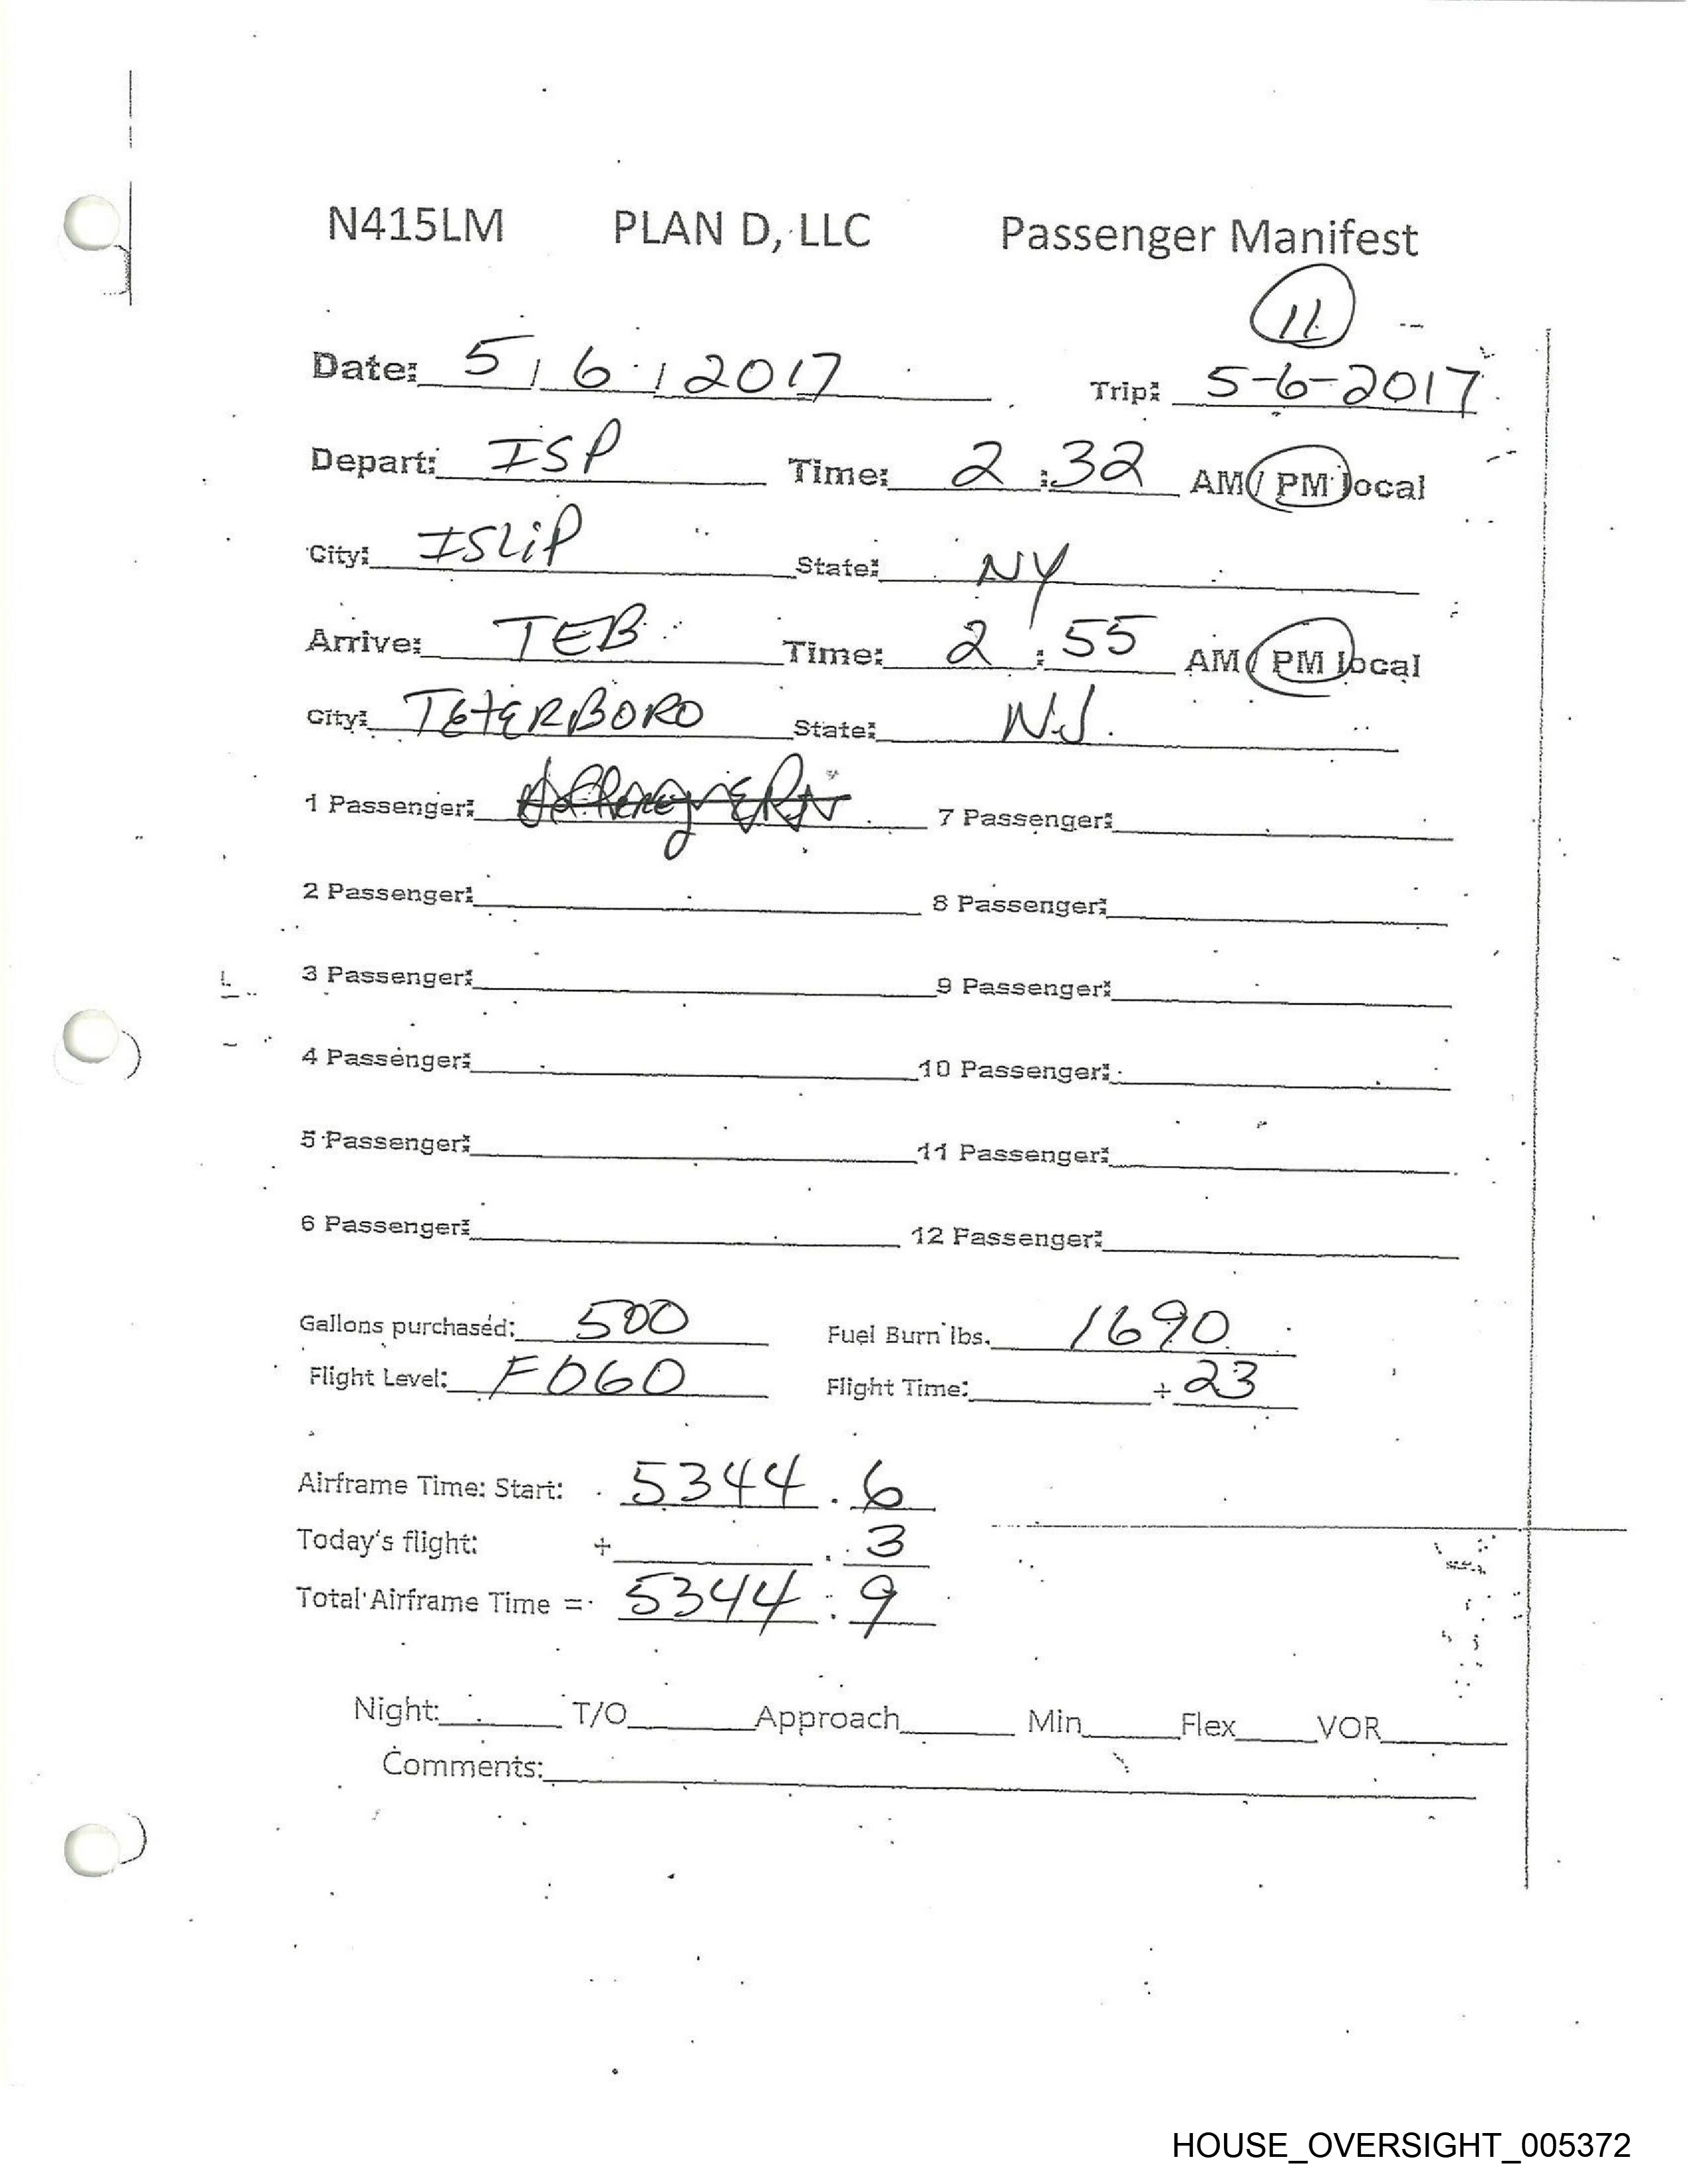 N415LM PLAN D, LLC Passenger Manifest
11
Date: 5 / 6 / 2017 Trip: 5-6-2017
Depart: ISP Time: 2 : 32 AM / PM local
City: ISLiP State: NY
Arrive: TEB Time: 2 : 55 AM / PM local
City: TETERBORO State: NJ.
1 Passenger: 7 Passenger:
2 Passenger: 8 Passenger:
3 Passenger: 9 Passenger:
4 Passenger: 10 Passenger:
5 Passenger: 11 Passenger:
6 Passenger: 12 Passenger:
Gallons purchased: 500 Fuel Burn lbs. 1690
Flight Level: F060 Flight Time: + 23
Airframe Time: Start: 5344 . 6
Today's flight: + . 3
Total Airframe Time = 5344 . 9
Night: T/O Approach Min Flex VOR
Comments:
HOUSE_OVERSIGHT_005372